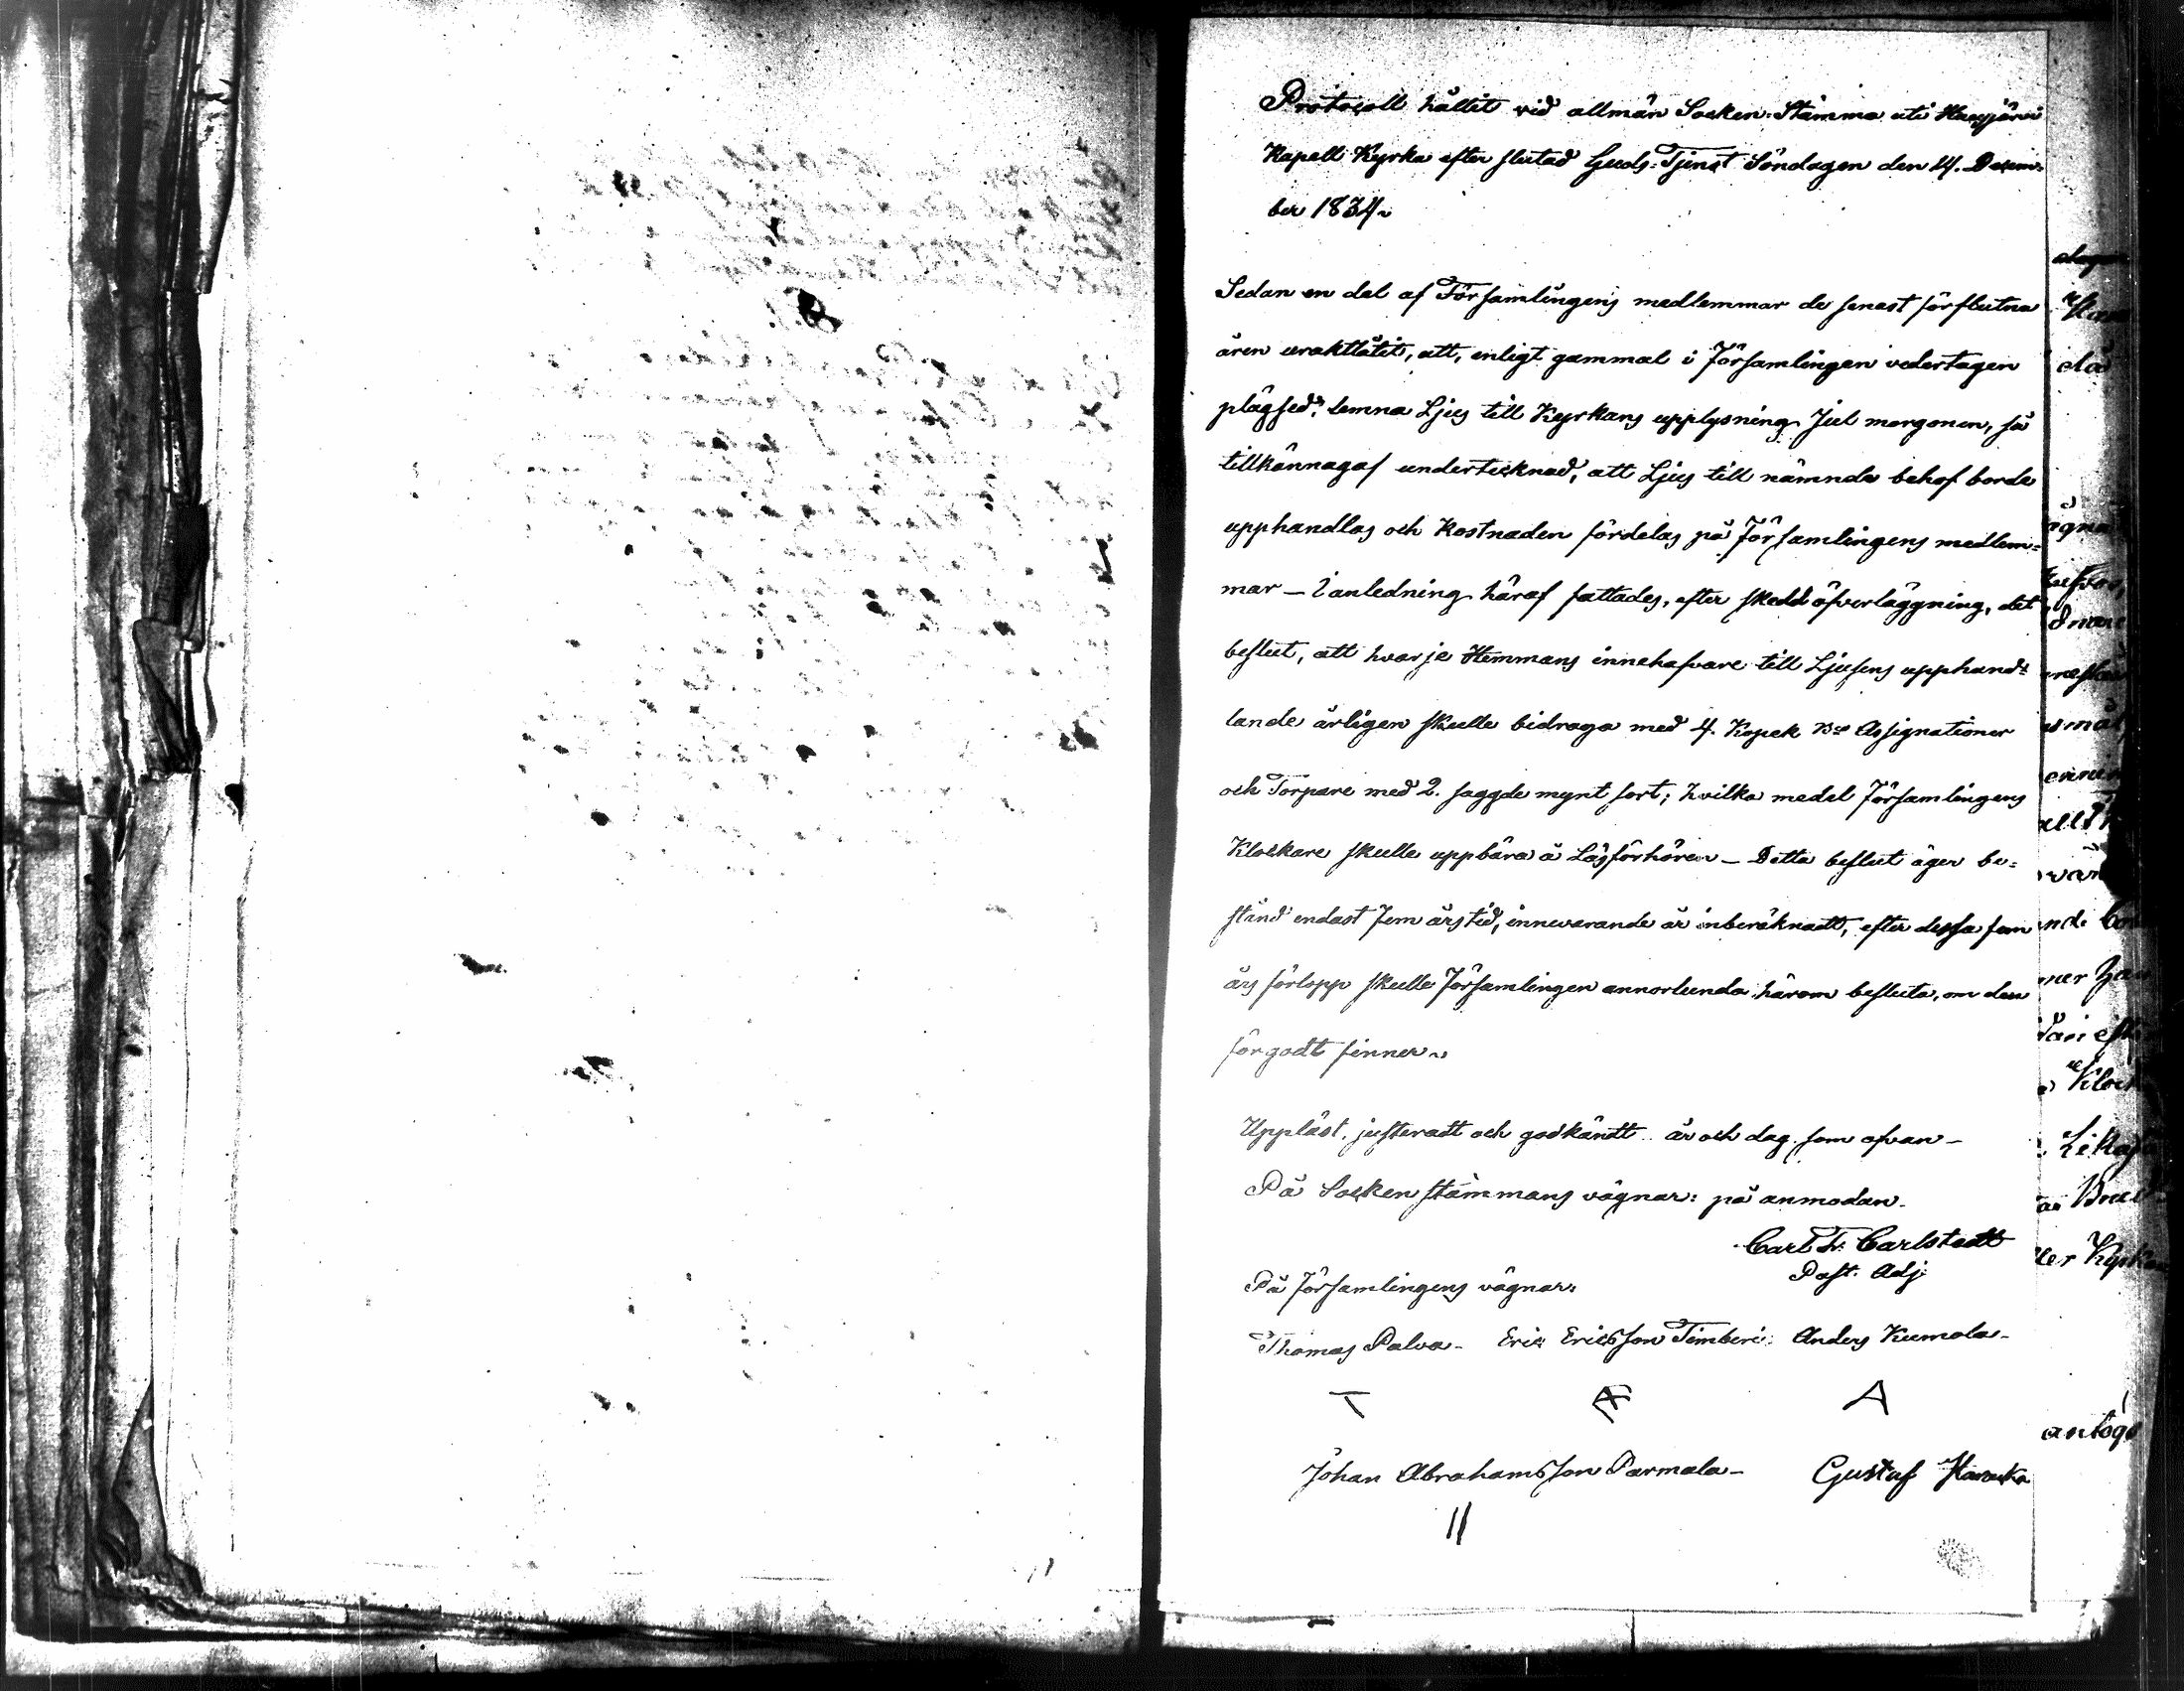 Protocoll hållit vid allmän Socken-Stämma uti Honjärvi
Kapell Kyrka efter slutad Guds-Tjenst Söndagen den 14. Decem-
ber 1834.
Sedan en del af Församlingens medlemmar de senast förflutna
åren uraktlåtit, att, enligt gammal i Församlingen vedertagen
plägsed, lemna Ljus till Kyrkans upplysning Jul morgonen, så
tillkännagaf undertecknad, att Ljus till nämnde behof borde
upphandlas och Kostnaden fördelas på Församlingens medlem-
mar – I anledning häraf fattades, efter skedd öfverläggning, det
beslut, att hvarje Hemmans innehafvare till Ljusens upphand-
lande årligen skulle bidraga med 4. Kopek Bco Assignationer
och Torpare med 2. sagde mynt sort; hvilka medel Församlingens
Klockare skulle uppbära å Läsförhören – Detta beslut äger be-
stånd endast fem års tid, innevarande år inberäknadt, efter dessa fem
års förlopp skulle Församlingen annorlunda härom besluta, om den
för godt finner.
Uppläst, justeradt och godkändt år och dag som ofvan –
På Socken stämmans vägnar: på anmodan.
Carl Fr. Carlstedt
Past. Adj.
På Församlingens vägnar:
Thomas Palva – Eric Ericsson Timberi. Anders Kumola –
T A A
Johan Abrahamsson Parmala – Gustaf